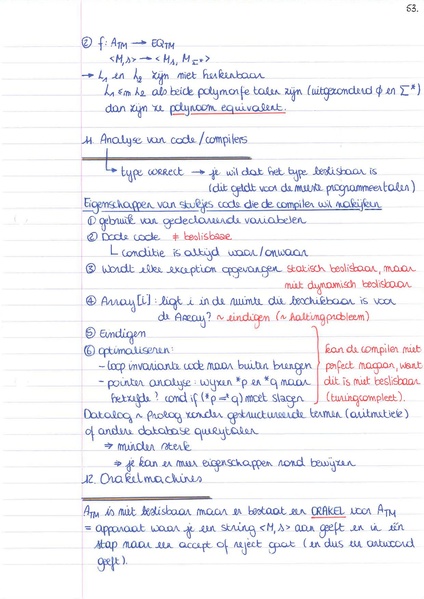 63.
② f: ATM → EQTM
<M,s> → <Ms, MΣ*>
→ L1 en L2 zijn niet herkenbaar
L1 ≤m L2 als beide polymorfe talen zijn (uitgezonderd ϕ en Σ*)
dan zijn ze polynoom equivalent.
11. Analyse van code/compilers
↳ type correct → je wil dat het type beslisbaar is
(dit geldt voor de meeste programmeertalen)
Eigenschappen van stukjes code die de compiler wil nakijken
① gebruik van gedeclareerde variabelen
② Dode code ≠ beslisbaar
↳ conditie is altijd waar/onwaar
③ Wordt elke exception opgevangen statisch beslisbaar, maar
niet dynamisch beslisbaar
④ Array[i]: ligt i in de ruimte die beschikbaar is voor
de Array? ~ eindigen (~ haltingprobleem)
⑤ Eindigen
⑥ optimaliseren:
- loop invariante code naar buiten brengen
- pointer analyse: wijzen *p en *q naar
hetzelfde? cond if (*p == *q) moet slagen
kan de compiler niet
perfect nagaan, want
dit is niet beslisbaar
(turingcompleet).
Datalog ~ Prolog zonder gestructureerde termen (aritmetiek)
of andere database querytalen
⇒ minder sterk
⇒ je kan er meer eigenschappen rond bewijzen
12. Orakelmachines
ATM is niet beslisbaar maar er bestaat een ORAKEL voor ATM
= apparaat waar je een string <M,s> aan geeft en in één
stap naar een accept of reject gaat (en dus een antwoord
geeft).